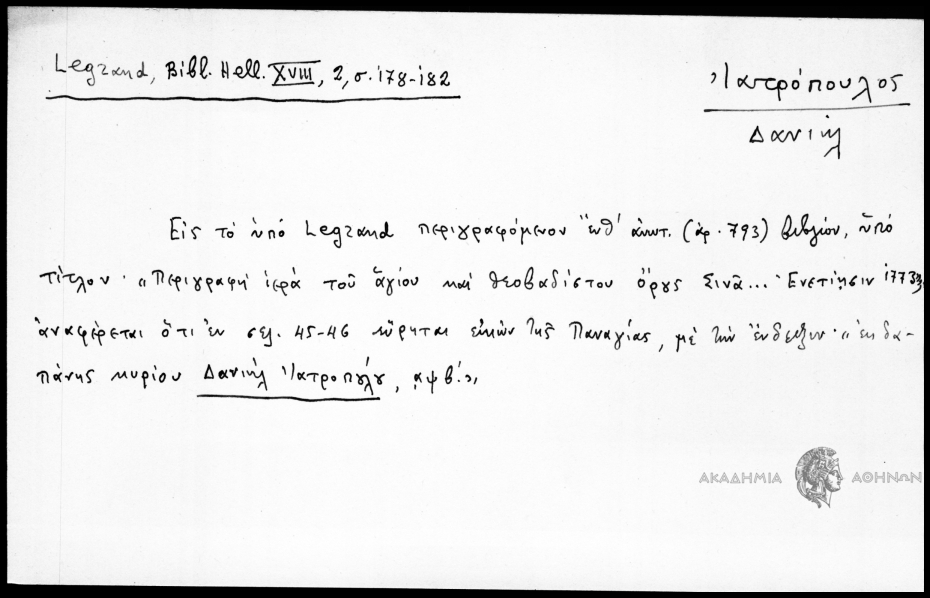 Legrand, Bibl. Hell. XVIII, 2, σ. 178-182
Ἰατρόπουλος
Δανιήλ
Εἰς τὸ ὑπὸ Legrand περιγραφόμενον ἔνθ' ἀνωτ. (ἀρ. 793) βιβλίον, ὑπὸ
τίτλον· «Περιγραφὴ ἱερὰ τοῦ ἁγίου καὶ θεοβαδίστου ὄρους Σινᾶ... Ἐνετίησιν 1773»
ἀναφέρεται ὅτι ἐν σελ. 45-46 εὕρηται εἰκὼν τῆς Παναγίας, μὲ τὴν ἔνδειξιν· «ἐκ δα-
πάνης κυρίου Δανιὴλ Ἰατροπούλου, αψβ.»
ΑΚΑΔΗΜΙΑ ΑΘΗΝΩΝ